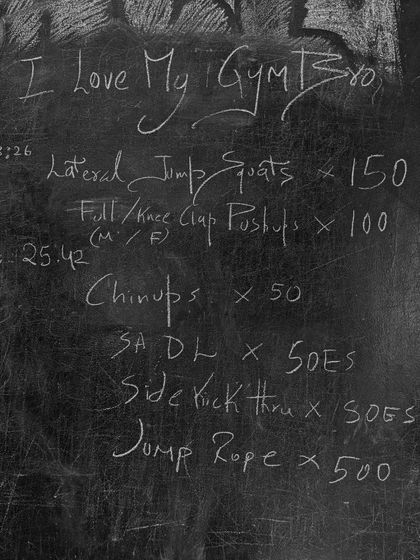 I Love My Gym Bro,
3:26
Lateral Jump Squats x 150
Full/Knee Clap Pushups x 100
(M / F)
25:42
Chinups x 50
SA DL x 50ES
Side Kick thru x 50ES
Jump Rope x 500